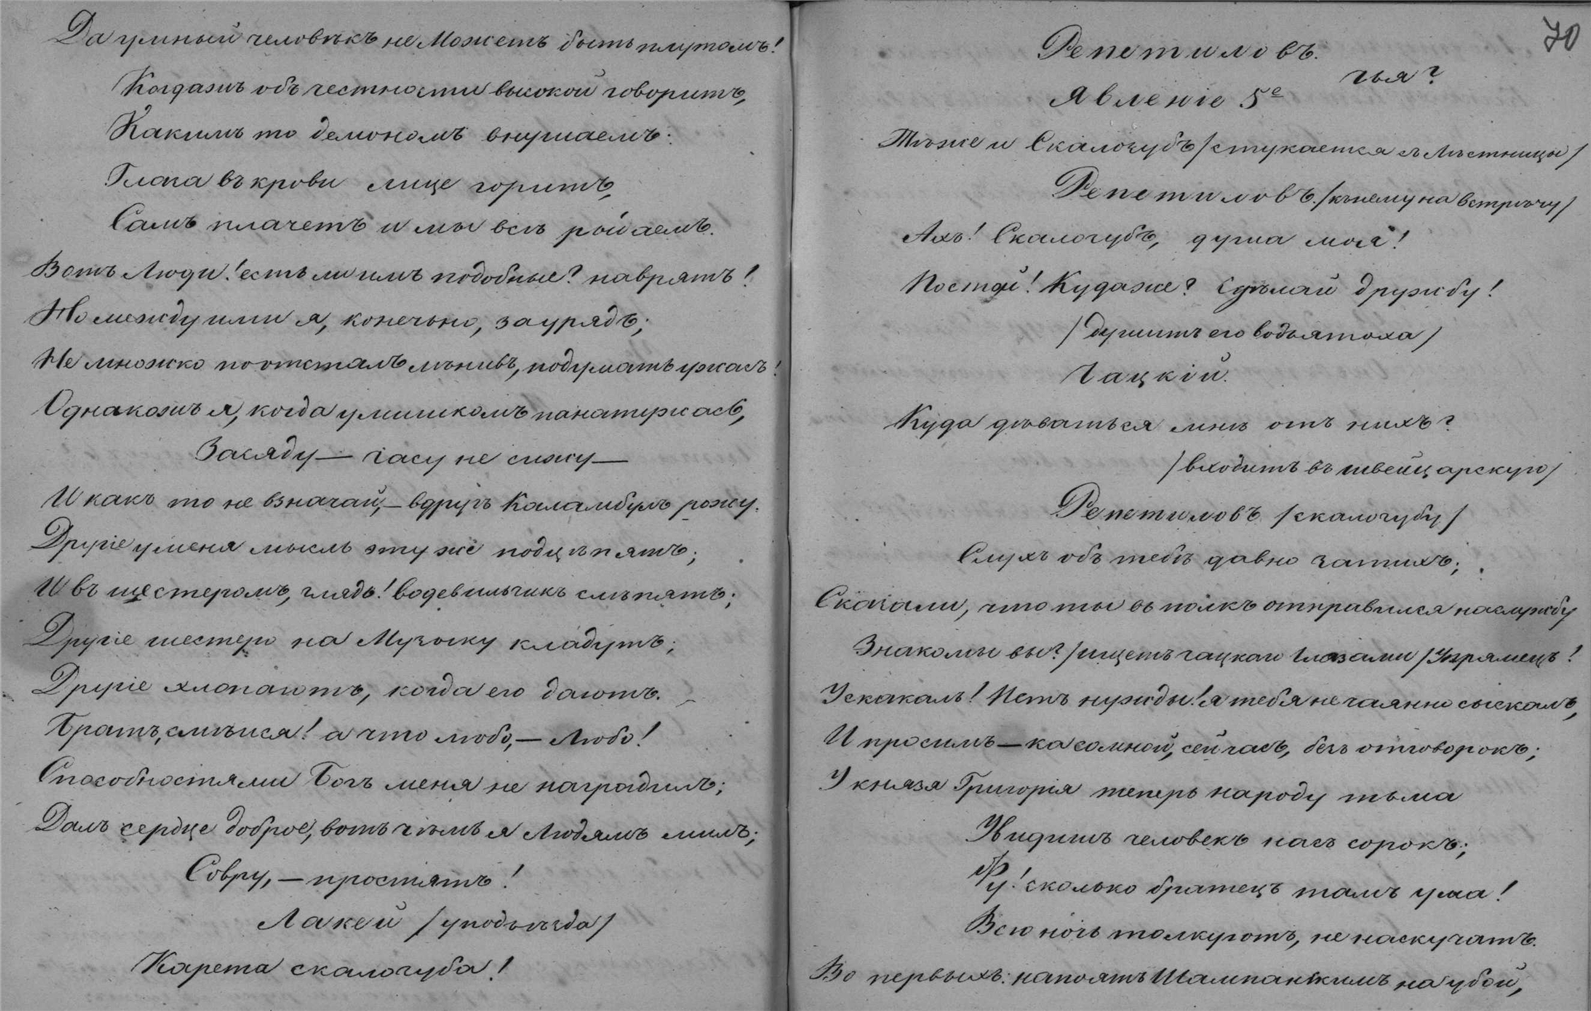 Да умный человѣкъ не Можетъ быть плутомъ!
Когдажъ объ честности высокой говоритъ,
Какимъ то демономъ внушаемъ:
Глаза въ крови лице горитъ,
Самъ плачетъ и мы всѣ рыдаемъ.
Вотъ Люди! есть ли имъ подобные? наврятъ!
Но между ими я, конечьно, заурядъ;
Не множко поотсталъ лѣнивъ, подумать ужасъ!
Однакожъ я, когда умишкомъ понатужась,
Засяду — часу не сижу —
И какъ то не взначай, — вдругъ Каламбуръ рожу.
Другіе у меня мысль эту же подцѣпятъ;
И въ шестеромъ, глядь! водевильчикъ слѣпятъ;
Другіе шестеро на Музыку кладутъ;
Другіе хлопаютъ, когда его даютъ.
Братъ, смѣйся! а что любо, — Любо!
Способностями Богъ меня не наградилъ;
Далъ сердце доброе, вотъ чѣмъ я Людямъ милъ;
Совру, — простятъ!
Лакей /у подъѣзда/
Карета скалозуба!
70
Репетиловъ.
Чья?
Явленіе 5е
Тѣже и Скалозубъ /спускается съ лѣстницы/
Репетиловъ /къ нему на встрѣчу/
Ахъ! Скалозубъ, душа моя!
Постой! Куда же? Сдѣлай дружбу!
/душитъ его въ объятіяхъ/
Чацкій.
Куда дѣваться мнѣ отъ нихъ?
/входитъ въ швейцарскую/
Репетиловъ /скалозубу/
Слухъ объ тебѣ давно затихъ;
Сказали, что ты въ полкъ отправился на службу
Знакомы вы? /ищетъ чацкаго глазами/ Упрямецъ!
Ускакалъ! Нетъ нужды! я тебя нечаянно сыскалъ,
И просимъ — ка со мной, сей часъ, безъ отговорокъ;
У князя Григорія теперь народу тьма
Увидишь человекъ насъ сорокъ;
Фу! сколько братецъ тамъ ума!
Всю ночь толкуютъ, не наскучатъ.
Во первыхъ: напоятъ Шампанскимъ на убой,